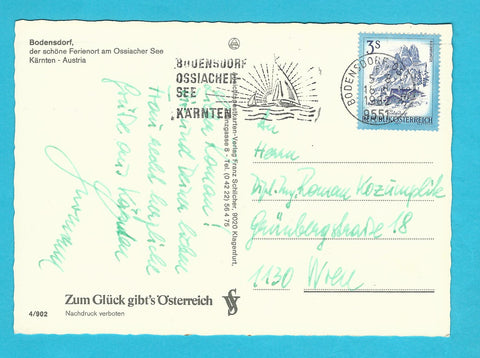 Bodensdorf,
der schöne Ferienort am Ossiacher See
Kärnten - Austria
BODENSDORF
OSSIACHER-
SEE
KÄRNTEN
BODENSDORF
1982
9551
3 S
REPUBLIK ÖSTERREICH
Ansichtskarten-Verlag Franz Schilcher, 9020 Klagenfurt,
gasse 8 - Tel. (0 42 22) 56 4 75
Roman!
und Deiner lieben
Frau recht herzliche
Grüße aus Kärnten
An
Herrn
Dipl. Ing. Roman Kozumplik
Grünbergstraße 18
1130 Wien
Zum Glück gibt's Österreich
4/902
Nachdruck verboten